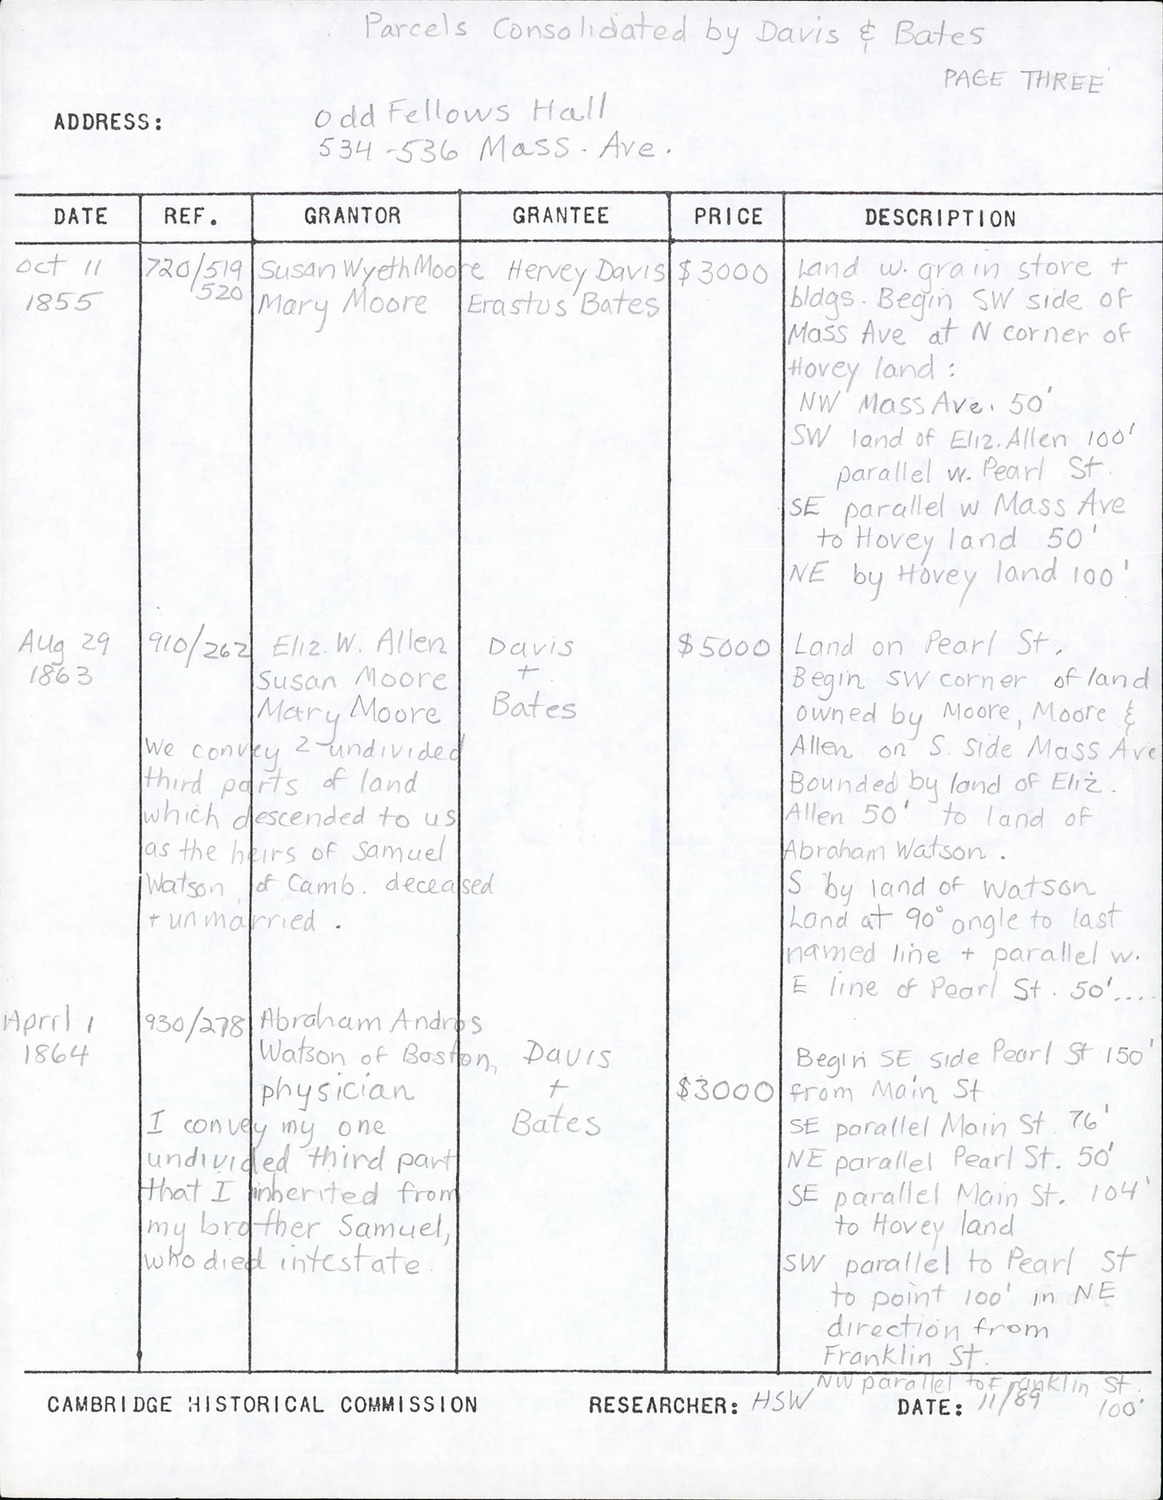 Parcels Consolidated by Davis & Bates
PAGE THREE
ADDRESS: Odd Fellows Hall
534-536 Mass. Ave.
DATE REF. GRANTOR GRANTEE PRICE DESCRIPTION
Oct 11 720/519 Susan Wyeth Moore Hervey Davis $3000 Land w. grain store +
1855 520 Mary Moore Erastus Bates bldgs. Begin SW side of
Mass Ave at N corner of
Hovey land :
NW Mass Ave. 50'
SW land of Eliz. Allen 100'
parallel w. Pearl St.
SE parallel w Mass Ave
to Hovey land 50'
NE by Hovey land 100'
Aug 29 910/262 Eliz. W. Allen Davis $5000 Land on Pearl St.
1863 Susan Moore + Begin SW corner of land
Mary Moore Bates owned by Moore, Moore &
We convey 2 undivided Allen on S. side Mass Ave
third parts of land Bounded by land of Eliz.
which descended to us Allen 50' to land of
as the heirs of Samuel Abraham Watson.
Watson, of Camb. deceased S by land of Watson
+ unmarried. Land at 90° angle to last
named line + parallel w.
E line of Pearl St. 50'....
April 1 930/278 Abraham Andros
1864 Watson of Boston, Davis Begin SE side Pearl St 150'
physician + $3000 from Main St
I convey my one Bates SE parallel Main St. 76'
undivided third part NE parallel Pearl St. 50'
that I inherited from SE parallel Main St. 104'
my brother Samuel, to Hovey land
who died intestate. SW parallel to Pearl St
to point 100' in NE
direction from
Franklin St.
NW parallel to Franklin St.
100'
CAMBRIDGE HISTORICAL COMMISSION RESEARCHER: HSW DATE: 11/89